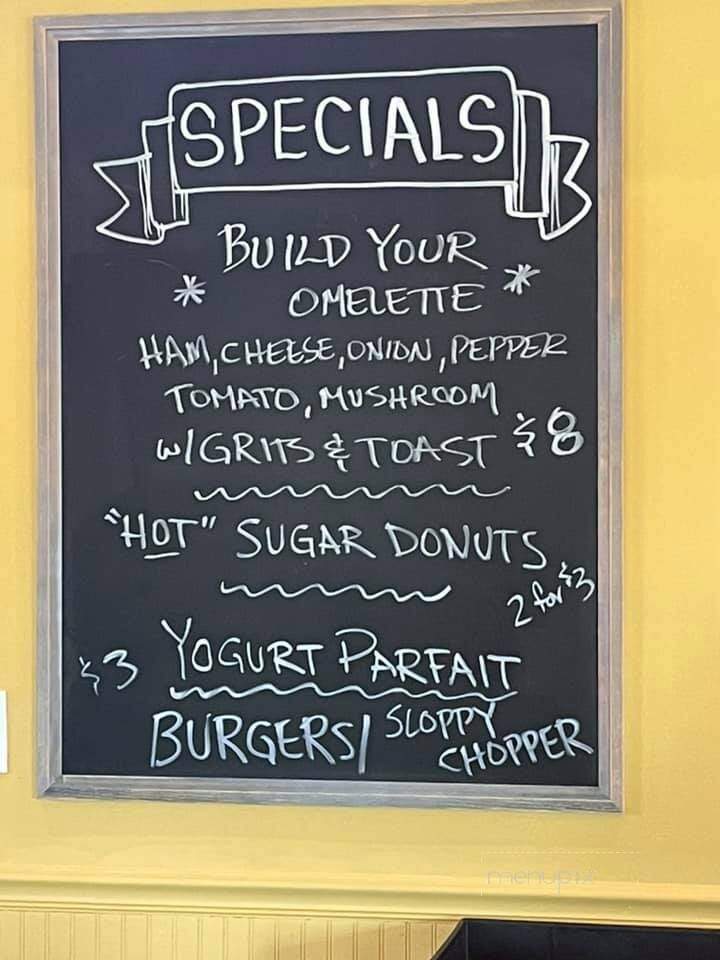 SPECIALS
BUILD YOUR
* OMELETTE *
HAM, CHEESE, ONION, PEPPER
TOMATO, MUSHROOM
W/GRITS & TOAST $8
"HOT" SUGAR DONUTS
2 for $3
$3 YOGURT PARFAIT
BURGERS/ SLOPPY
CHOPPER
menupix